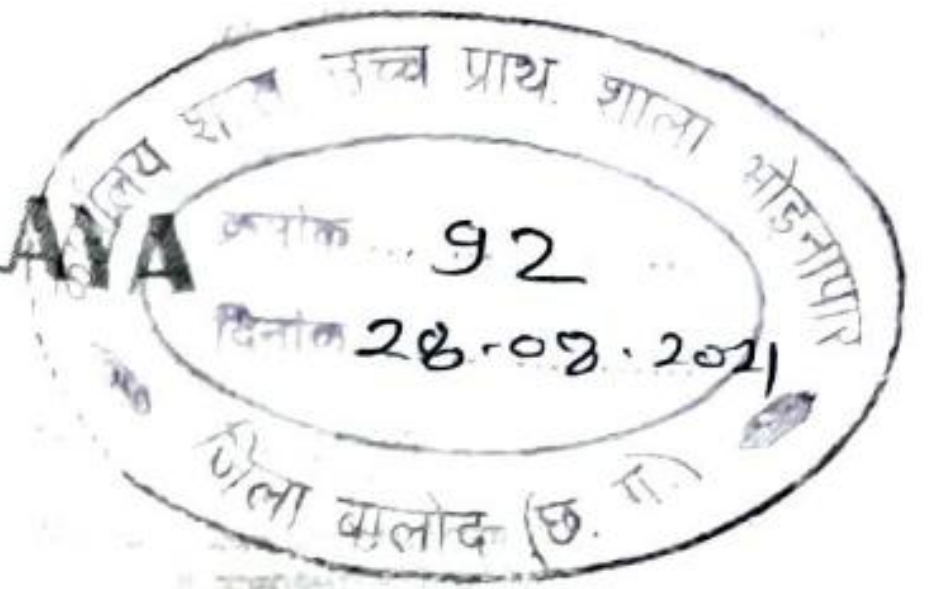 कार्यालय शास उच्च प्राथ. शाला भोडनापार
AYA
क्रनांक ... 92
दिनांक 28.08.2021
जिला बालोद (छ. ग.)